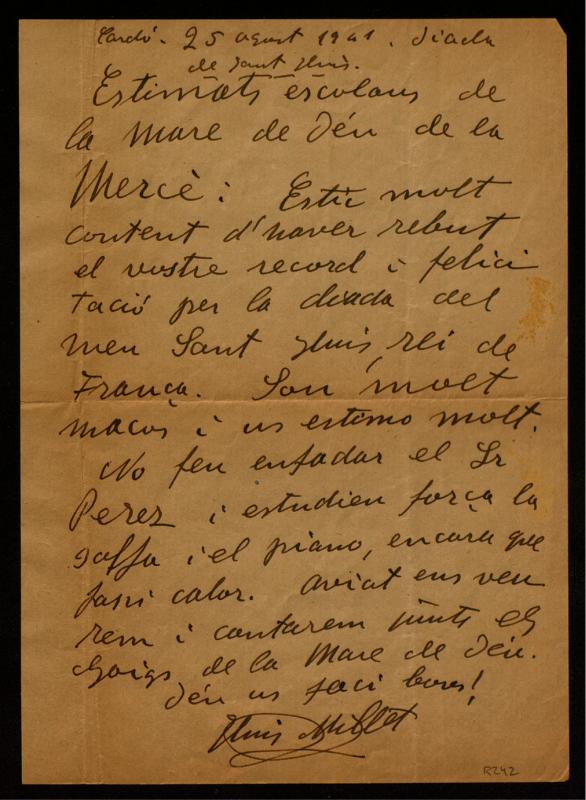 Cardó. 25 agost 1941. diada
de Sant Lluis.
Estimats escolans de
la Mare de Déu de la
Mercè: Estic molt
content d'haver rebut
el vostre record i felici
tació per la diada del
meu Sant Lluis, rei de
França. Son molt
macos i us estimo molt.
No feu enfadar el Sr
Perez i estudien força la
solfa i el piano, encara que
fassi calor. Aviat ens veu
rem i cantarem junts els
Goigs de la Mare de Déu.
Déu us faci bons!
Lluis Millet
R242